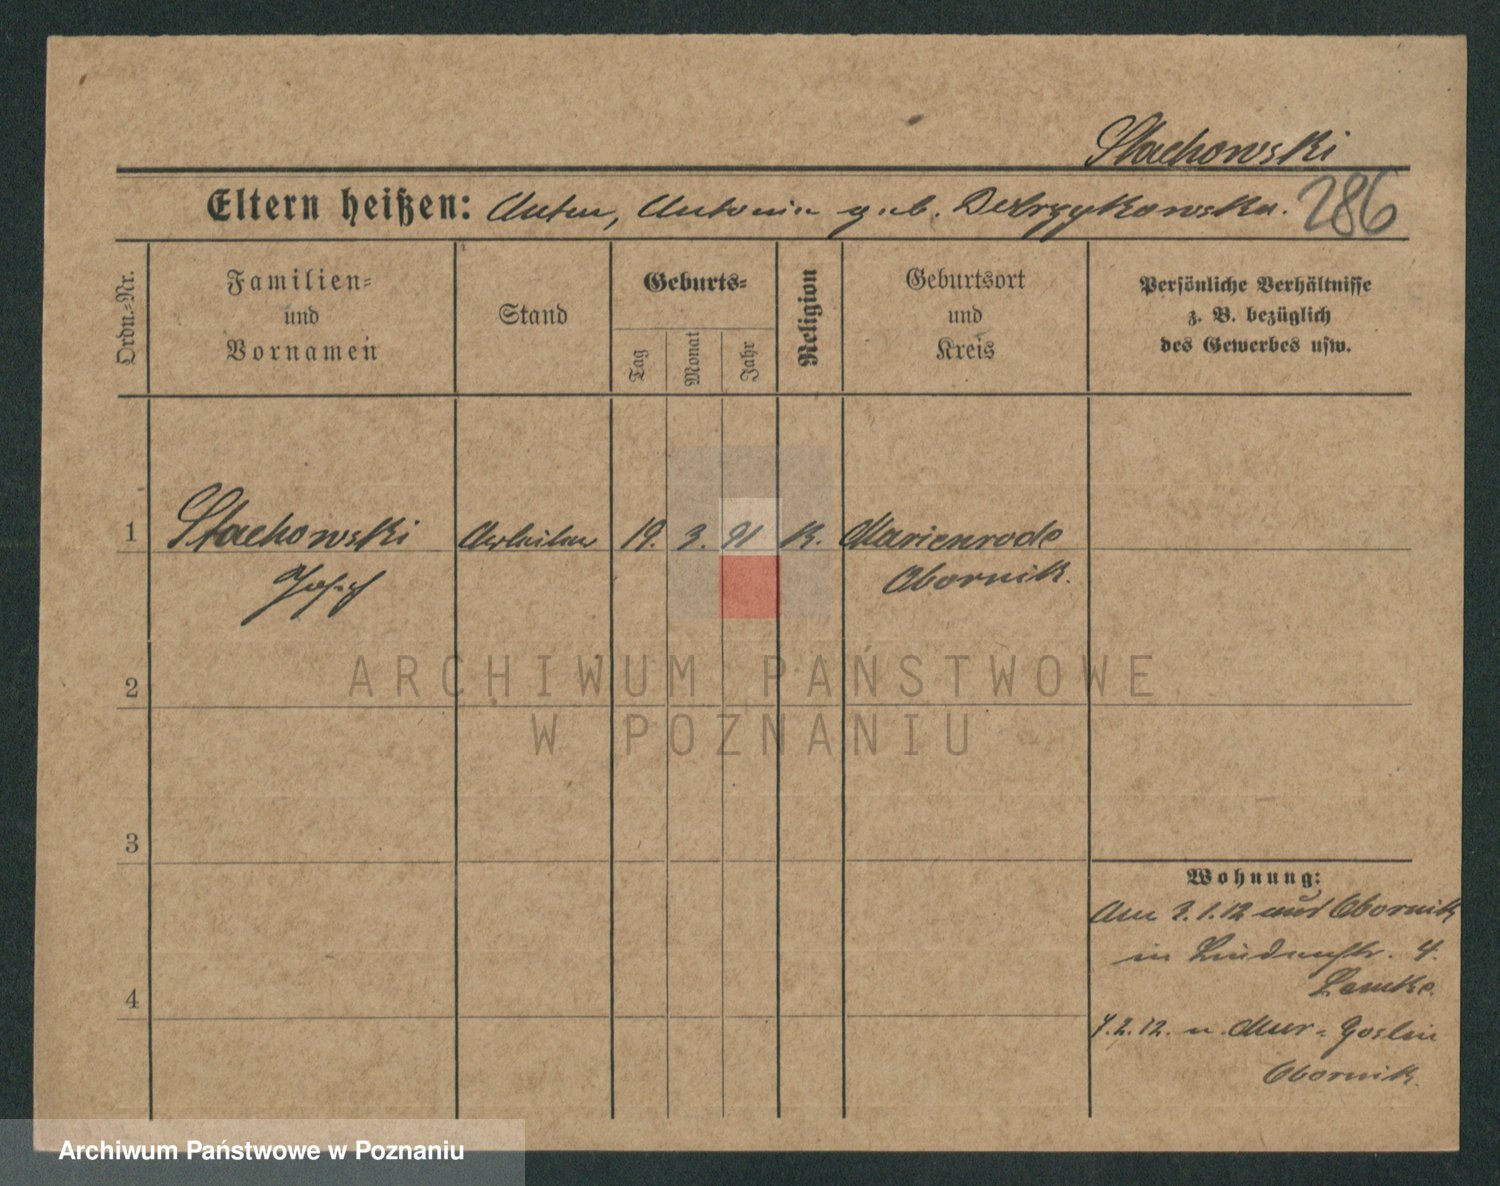 Stachowski
Eltern heißen: Anton, Antonia geb.
286
Ordn.-Nr.
Familien-
und
Vornamen
Stand
Geburts-
Tag
Monat
Jahr
Religion
Geburtsort
und
Kreis
Persönliche Verhältnisse
z. B. bezüglich
des Gewerbes usw.
1 Stachowski Arbeiter 19. 3. 91 K. Marienrode
Josef Obornik.
ARCHIWUM PAŃSTWOWE
W POZNANIU
2
3
4
Wohnung:
Am 3.1.12 aus Obornik
in Lindenstr. 4.
Lemke.
7.2.12. n. Mur-Goslin
Obornik.
Archiwum Państwowe w Poznaniu